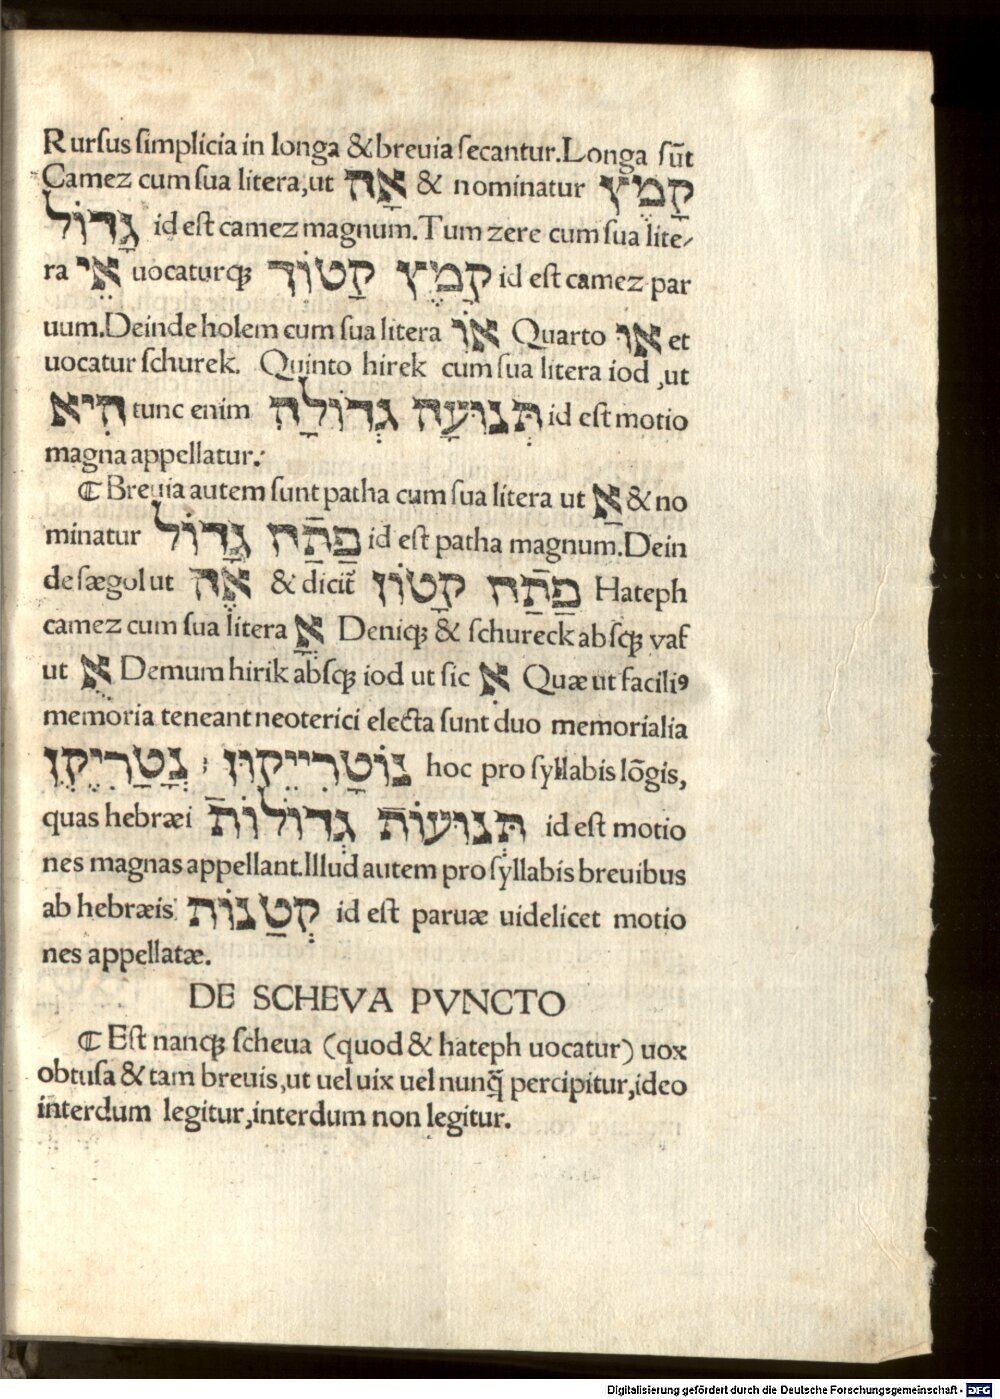 Rurſus ſimplicia in longa & breuia ſecantur. Longa ſūt
Camez cum ſua litera, ut אָה & nominatur קָמֶץ
גָּדוֹל id eſt camez magnum. Tum zere cum ſua lite-
ra אֵי uocaturqꝫ קָמֶץ קָטוֹן id eſt camez par
uum. Deinde holem cum ſua litera אוֹ Quarto אוּ et
uocatur ſchurek. Quinto hirek cum ſua litera iod, ut
הִיא tunc enim תְּנוּעָה גְּדוֹלָה id eſt motio
magna appellatur.
⁋ Breuia autem ſunt patha cum ſua litera ut אַ & no
minatur פַּתַּח גָּדוֹל id eſt patha magnum. Dein
de ſægol ut אֶה & dicit̃ פַּתַּח קָטוֹן Hateph
camez cum ſua litera אֳ Deniqꝫ & ſchureck abſqꝫ vaf
ut אֻ Demum hirik abſqꝫ iod ut ſic אִ Quæ ut faciliꝰ
memoria teneant neoterici electa ſunt duo memorialia
נוֹטָרֵיקוּן נֳטַרִיקֻן hoc pro ſyllabis lõgis,
quas hebræi תְּנוּעוֹת גְּדוֹלוֹת id eſt motio
nes magnas appellant. Illud autem pro ſyllabis breuibus
ab hebræis קְטַנּוֹת id eſt paruæ uidelicet motio
nes appellatæ.
DE SCHEVA PVNCTO
⁋ Eſt nanqꝫ ſcheua (quod & hateph uocatur) uox
obtuſa & tam breuis, ut uel uix uel nunq̃ percipitur, ideo
interdum legitur, interdum non legitur.
Digitalisierung gefördert durch die Deutsche Forschungsgemeinschaft - DFG